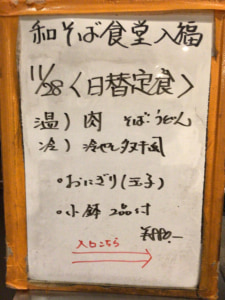 和そば食堂入福
11/28〈日替定食〉
温）肉 そば・うどん
冷）冷やしタヌキ
・おにぎり（玉子）
・小鉢 2品付
入口こちら